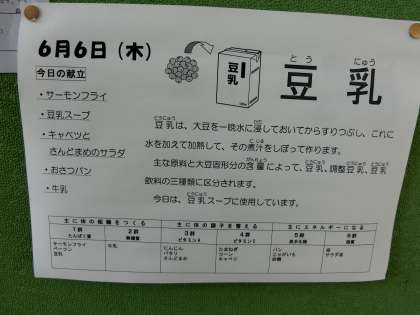 6月6日（木）
今日の献立
・サーモンフライ
・豆乳スープ
・キャベツと
さんどまめのサラダ
・おさつパン
・牛乳
豆乳
とう にゅう
豆 乳
豆乳は、大豆を一晩水に浸しておいてからすりつぶし、これに
水を加えて加熱して、その煮汁をしぼって作ります。
主な原料と大豆固形分の含量によって、豆乳、調整豆乳、豆乳
飲料の三種類に区分されます。
今日は、豆乳スープに使用しています。
主に体の組織をつくる 主に体の調子を整える 主にエネルギーになる
1群 2群 3群 4群 5群 6群
たんぱく質 無機質 ビタミンA ビタミンC 炭水化物 脂質
サーモンフライ 牛乳 にんじん たまねぎ パン 油
ベーコン パセリ コーン じゃがいも サラダ油
豆乳 さんどまめ キャベツ 砂糖